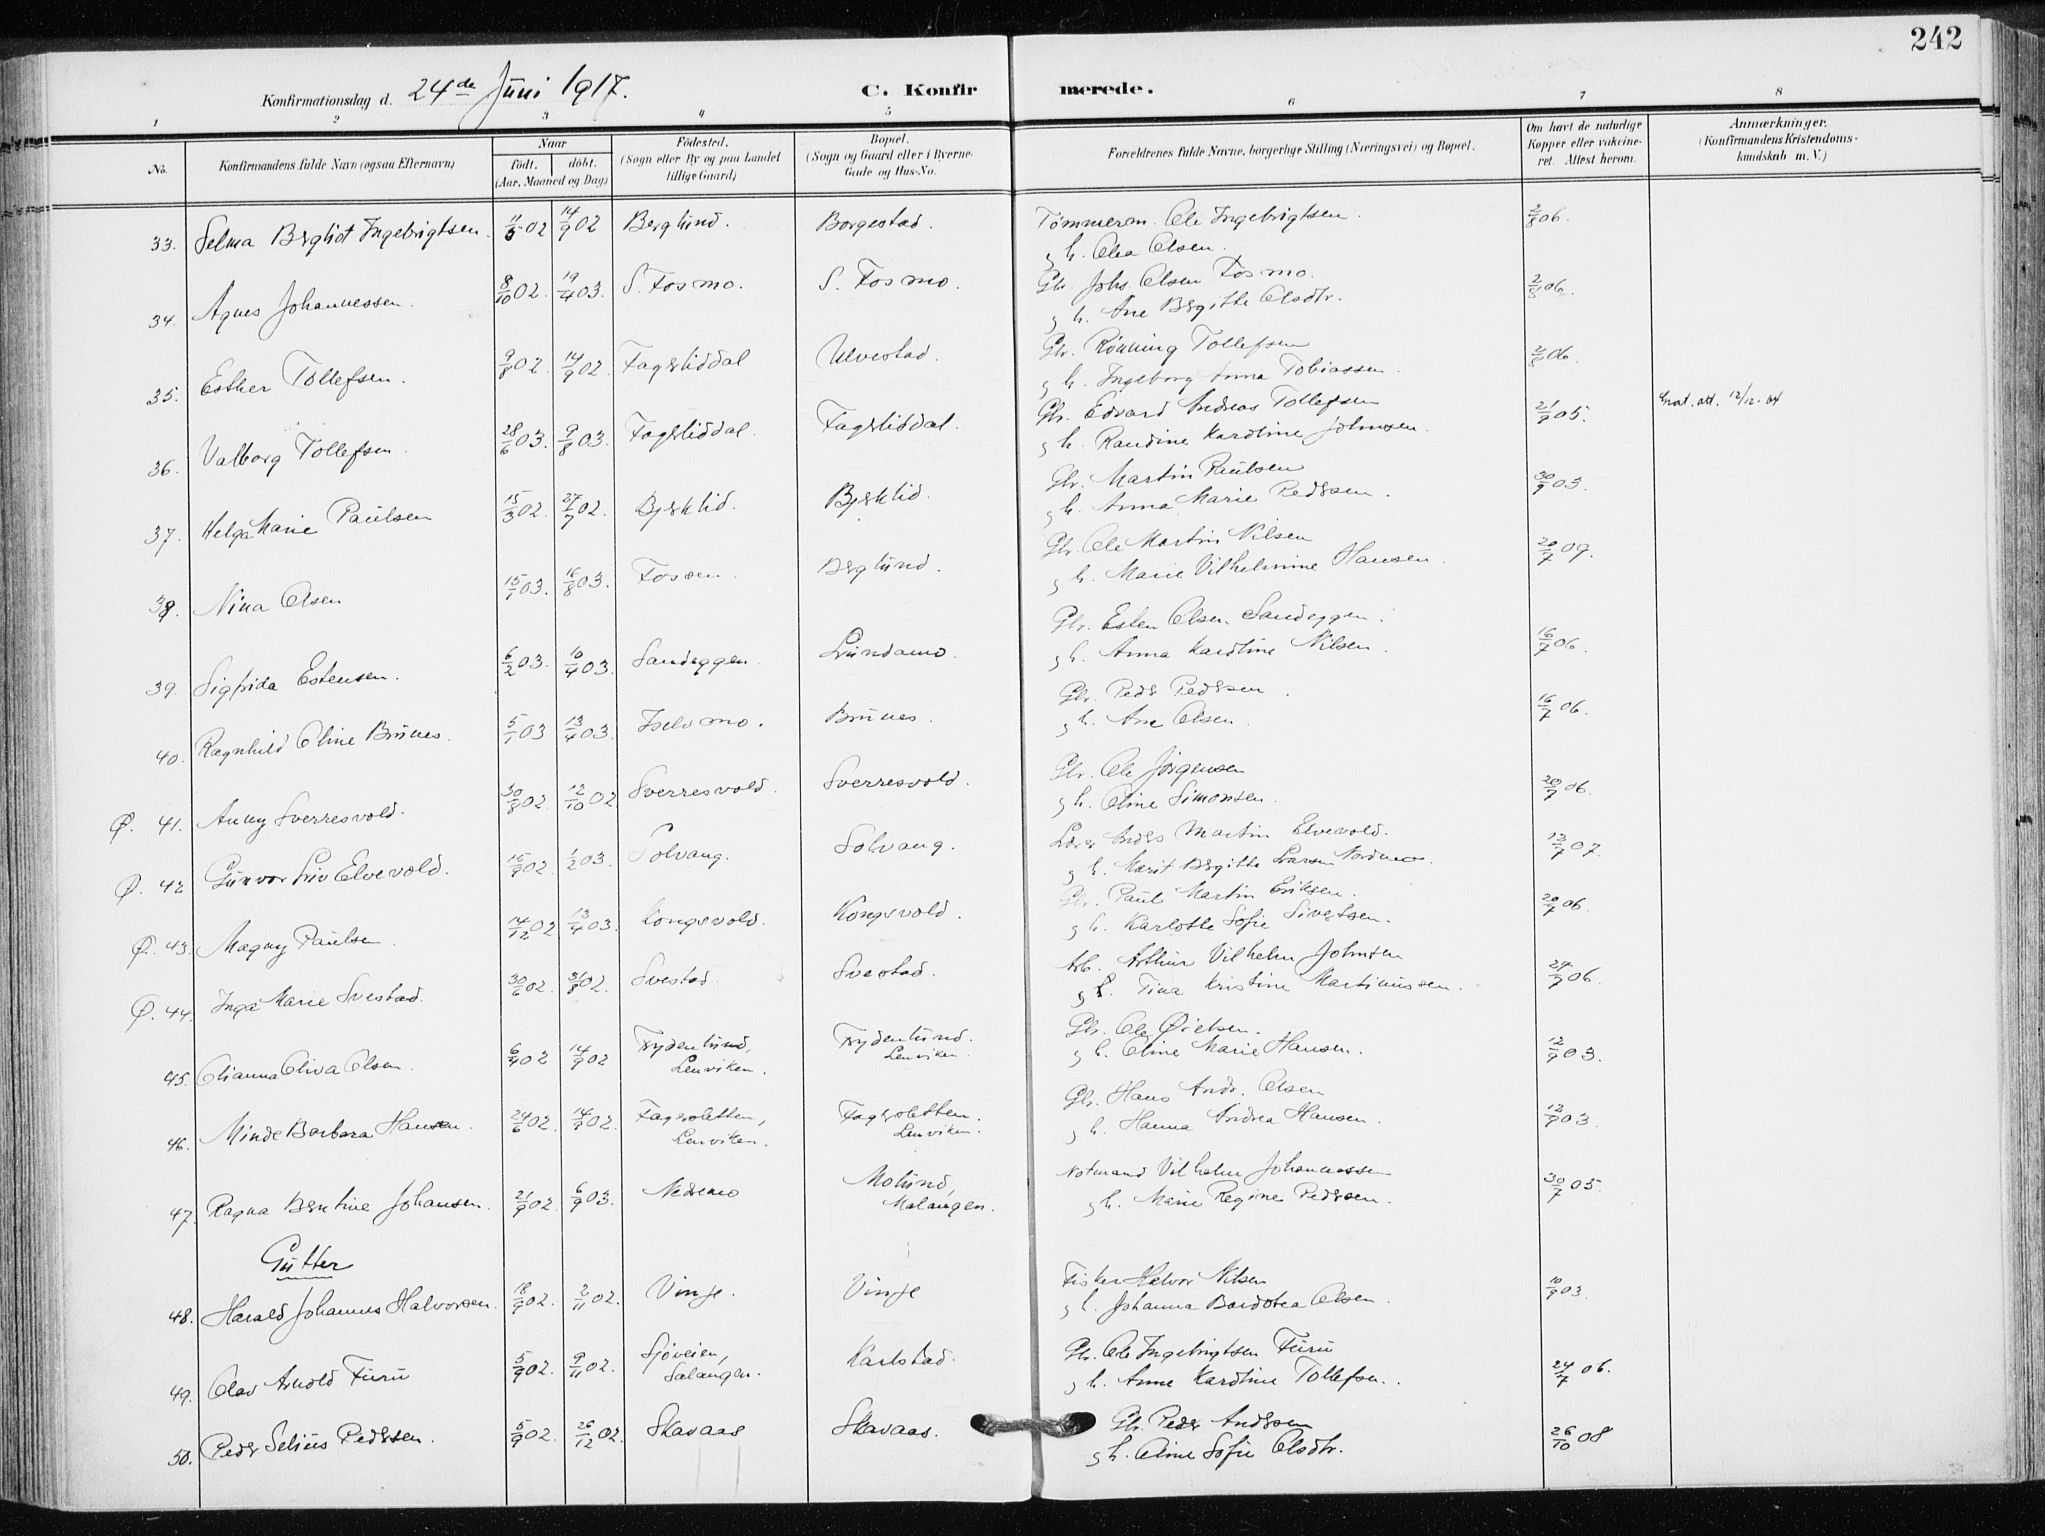 242
Konfirmationsdag d. 24de Juni 1917.
C. Konfirmerede.
1 2 3 4 5 6 7 8
No.
Konfirmandens fulde Navn (ogsaa Efternavn)
Naar
født. døbt.
(Aar, Maaned og Dag)
Fødested.
(Sogn eller By og paa Landet
tillige Gaard)
Bopæl.
(Sogn og Gaard eller i Byerne
Gade og Hus-No.
Forældrenes fulde Navne, borgerlige Stilling (Næringsvei) og Bopæl.
Om havt de naturlige
Kopper eller vakcine-
ret. Attest herom.
Anmærkninger.
(Konfirmandens Kristendoms-
kundskab m. V.)
33. Selma Bergliot Ingebrigtsen. 11/5 02 14/9 02 Berglund. Borgestad. Tömmerm. Ole Ingebrigtsen. 2/8 06.
g h. Olea Olsen.
34. Agnes Johannessen. 8/10 02. 19/4 03. S. Fosmo. S. Fosmo. Gbr. Johs. Olsen Fosmo. 2/8 06.
g h. Ane Bergitte Olsdtr.
35. Esther Tollefsen. 9/8 02. 14/9 02. Fagerliddal Ulvestad. Gbr. Rönning Tollefsen 2/8 06.
g h. Ingeborg Anna Tobiassen.
36. Valborg Tollefsen. 28/6 03. 9/8 03. Fagerliddal. Fagerliddal. Gbr. Edvard Andreas Tollefsen 21/9 05. att. 12/12-64
g h. Randine Karoline Johnsen.
37. Helga Marie Paulsen 15/3 02. 27/7 02. Bjerklid. Bjerklid. Gbr. Martin Paulsen 30/9 03.
g h. Anna Marie Pedersen.
38. Nina Olsen 15/7 03. 16/8 03. Fossen. Berglund. Gbr. Ole Martin Nilsen 20/7 09.
g h. Marie Vilhelmine Hansen.
39. Sigfrida Estensen. 6/2 03. 10/4 03. Sandeggen. Lundamo. Gbr. Esten Olsen Sandeggen. 16/7 06.
g h. Anna Karoline Nilsen.
40. Ragnhild Oline Brunes. 5/1 03 13/4 03. Iselvmo. Brunes. Gbr. Peder Pedersen. 16/7 06.
g h. Ane Olsen.
Ø. 41. Anny Sverresvold. 30/8 02. 12/10 02 Sverresvold. Sverresvold. Gbr. Ole Jørgensen 20/7 06.
g h. Oline Simonsen.
Ø. 42 Gunvor Liv Elvevold. 15/9 02 1/2 03. Solvang. Solvang. Lærer Anders Martin Elvevold. 13/7 07.
g h. Marit Bergitte Larsen Nordmo.
Ø. 43. Magny Paulsen 14/12 02 13/4 03. Kongsvold. Kongsvold. Gbr. Paul Martin Eriksen. 20/7 06.
g h. Karlotte Sofie Sivertsen.
Ø. 44. Inga Marie Svestad. 30/6 02. 31/8 02. Svestad. Svestad. Arb. Arthur Vilhelm Johnsen 27/9 06.
g h. Tina Kristine Martinussen.
45. Olianna Oliva Olsen. 6/4 02 14/9 02 Frydenlund, Frydenlund. Gbr. Ole Øielsen. 12/9 03.
Lenviken. Lenviken. g h. Eline Marie Hansen.
46. Minde Barbara Hansen. 24/6 02. 14/9 02. Fagersletten, Fagersletten. Gbr. Hans Andr. Olsen 12/9 03.
Lenviken. Lenviken. g h. Hanna Andrea Hansen.
47. Ragna Bentine Johansen. 21/9 02. 6/9 03. Nedremo Molund, Notmand Vilhelm Johannessen 30/7 05.
Malangen. g h. Marie Regine Pedersen.
Gutter
48. Harald Johannes Halvorsen. 18/9 02. 2/11 02. Vinje. Vinje Fisker Halvor Nilsen 10/9 03.
g h. Johanna Bardotea Olsen.
49. Olav Arnold Furu 5/9 02. 9/11 02. Sjøveien, Karlstad. Gbr. Ole Ingebrigtsen Furu 24/7 06.
Salangen. g h. Anne Karoline Tollefsen.
50. Peder Selius Pedersen. 5/9 02. 26/12 02. Skavaas Skavaas. Gbr. Peder Andersen 26/10 08
g h. Oline Sofie Olsdtr.